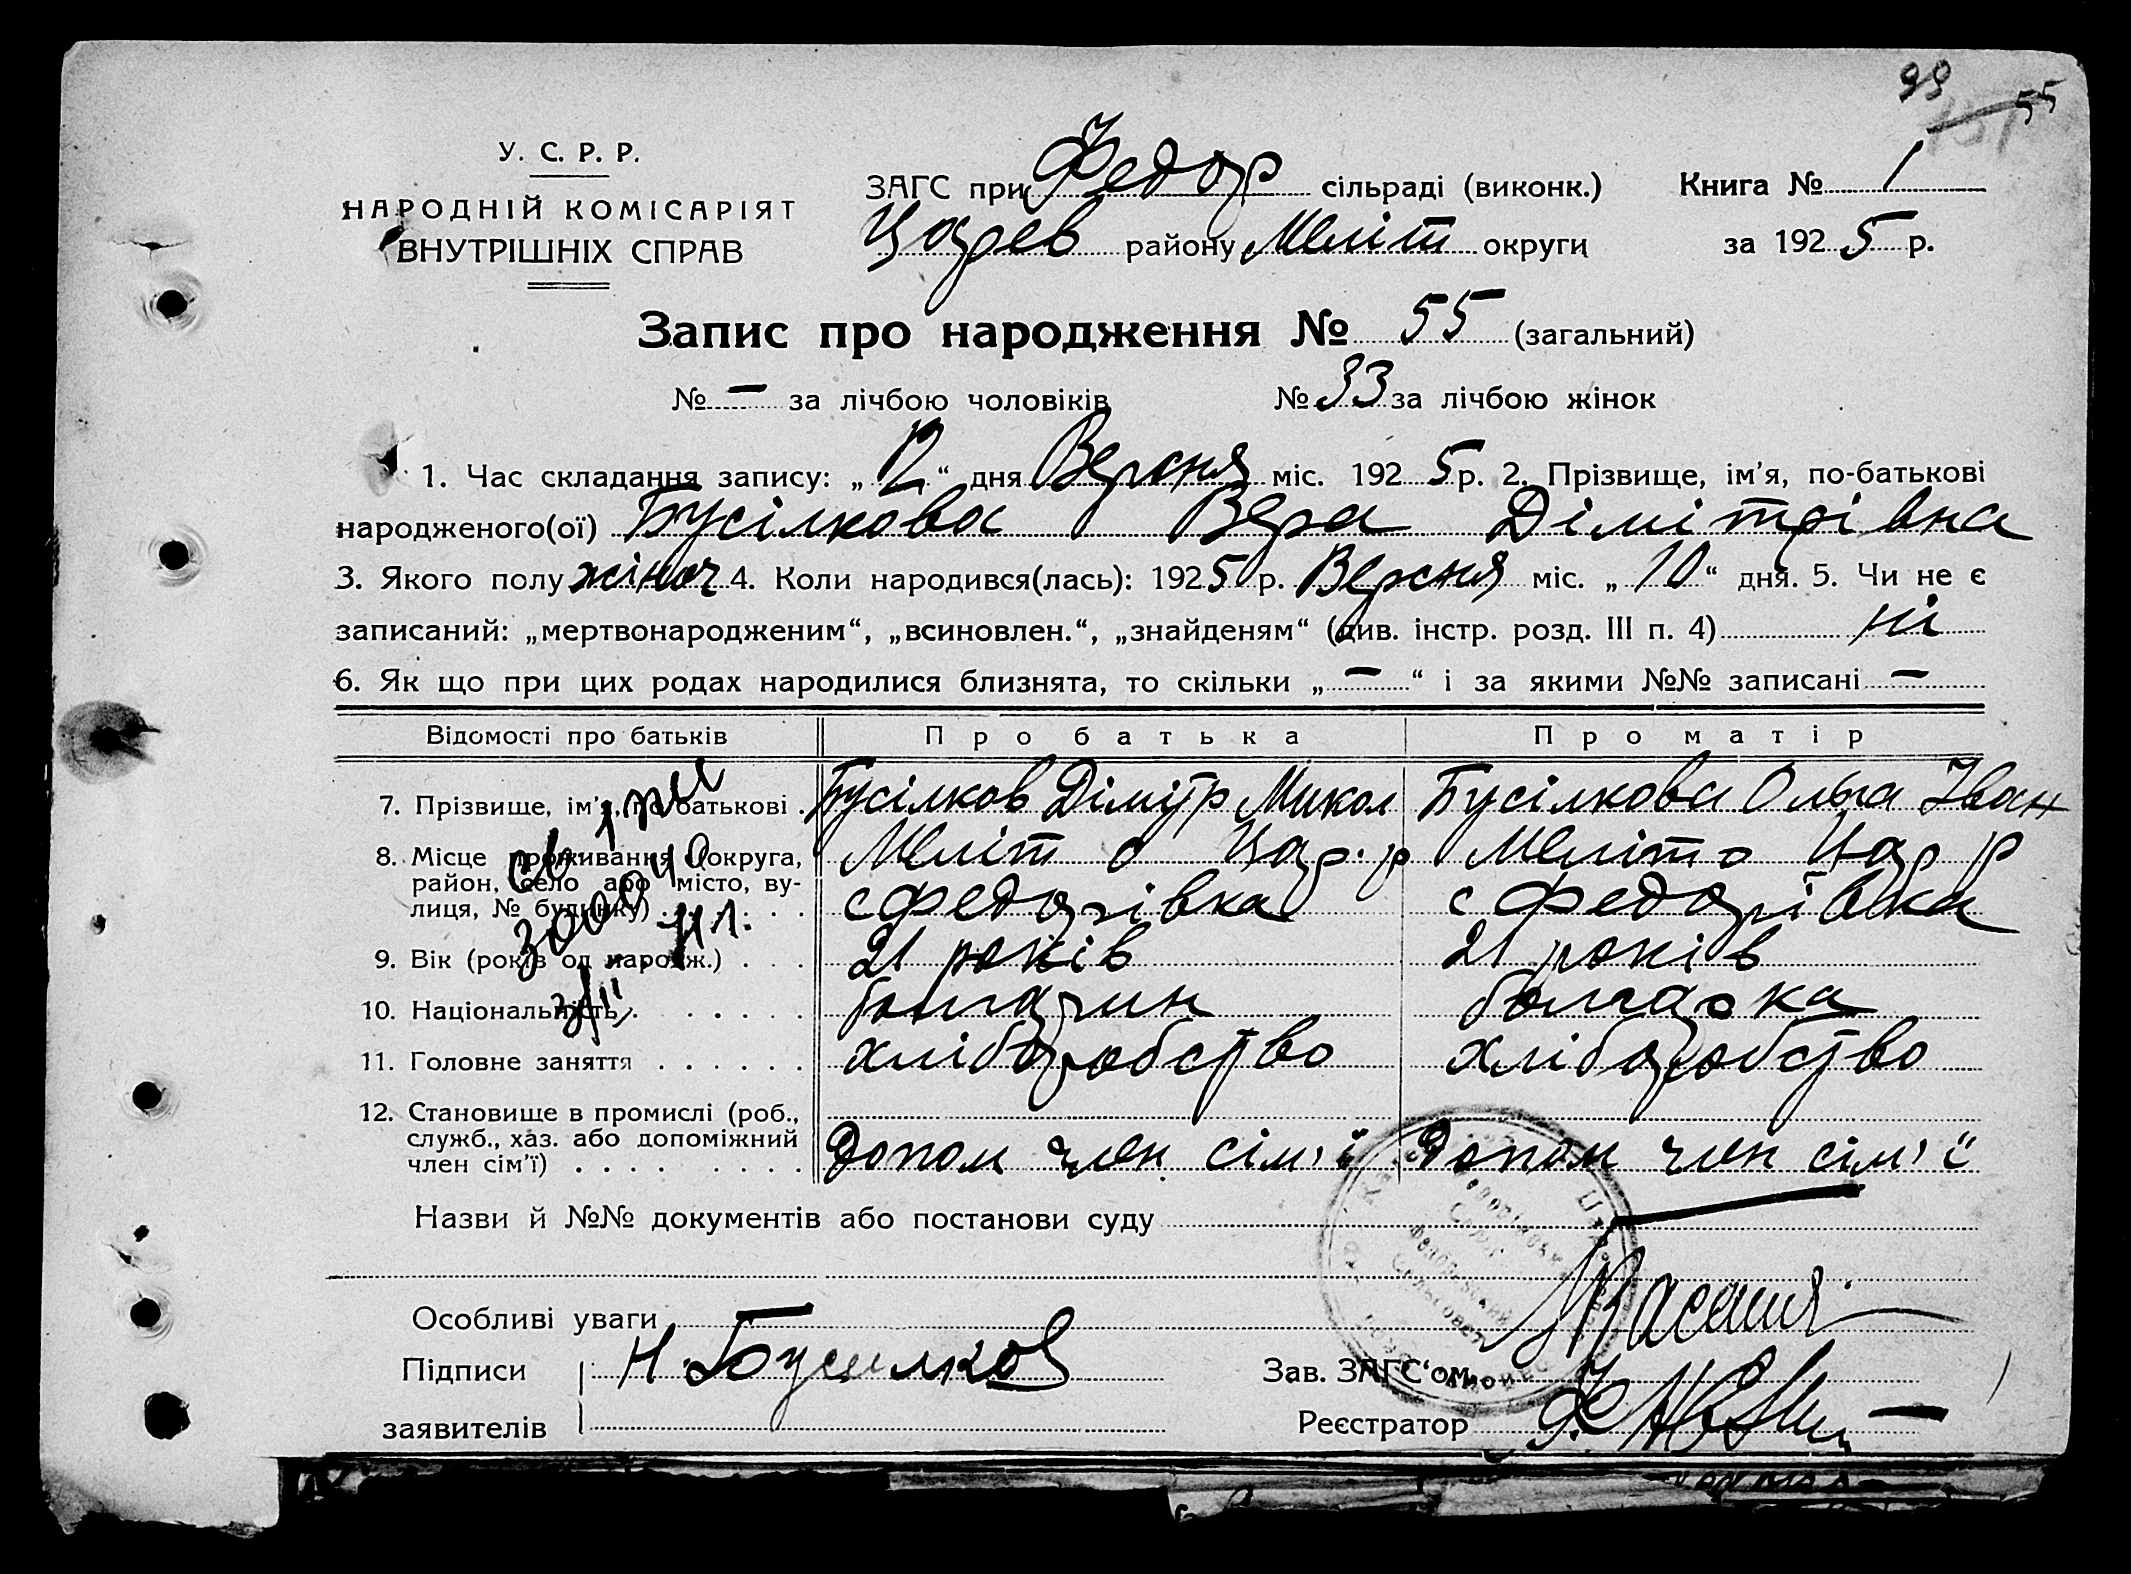 99
55
У. С. Р. Р.
НАРОДНІЙ КОМІСАРІЯТ
ВНУТРІШНІХ СПРАВ
ЗАГС при Федор сільраді (виконк.)
Царев району Меліт округи
Книга № 1
за 1925 р.
Запис про народження № 55 (загальний)
№ – за лічбою чоловіків № 33 за лічбою жінок
1. Час складання запису: „12“ дня Версня міс. 1925 р. 2. Прізвище, ім’я, по-батькові
народженого(ої) Бусілкова Вера Дімітрівна
3. Якого полу жіноч 4. Коли народився(лась): 1925 р. Версня міс. „10“ дня. 5. Чи не є
записаний: „мертвонародженим“, „всиновлен.“, „знайденям“ (див. інстр. розд. III п. 4) ні
6. Як що при цих родах народилися близнята, то скільки „–“ і за якими №№ записані –
Відомості про батьків Про батька Про матір
7. Прізвище, ім’я, по-батькові . Бусілков Дімітр Микол Бусілкова Ольга Іван
8. Місце проживання (округа, район, село або місто, вулиця, № будинку) . . . . . .
Меліт о Цар. р Меліт о Цар р
с Федорівка с Федорівка
9. Вік (років од народж.) . . . 21 років 21 років
10. Національність . . . . . . болгарин болгарка
11. Головне заняття . . . . . . хліборобство хліборобство
12. Становище в промислі (роб., служб., хаз. або допоміжний член сім’ї) . . . . . . . . Допом член сім’ї Допом член сім’ї
Назви й №№ документів або постанови суду
Особливі уваги
Підписи Н. Бусилков Зав. ЗАГС‘ом
заявителів Реєстратор